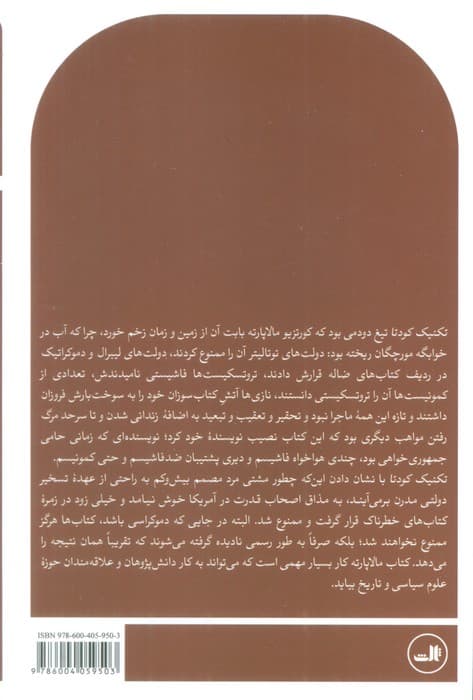 تکنیک کودتا تیغ دودمی بود که کورتزیو مالاپارته بابت آن از زمین و زمان زخم خورد، چرا که آب در
خوابگه مورچگان ریخته بود: دولت‌های توتالیتر آن را ممنوع کردند، دولت‌های لیبرال و دموکراتیک
در ردیف کتاب‌های ضاله قرارش دادند، تروتسکیست‌ها فاشیستی نامیدندش، تعدادی از
کمونیست‌ها آن را تروتسکیستی دانستند، نازی‌ها آتشِ کتاب‌سوزان خود را به سوخت‌بارش فروزان
داشتند و تازه این همهٔ ماجرا نبود و تحقیر و تعقیب و تبعید به اضافهٔ زندانی شدن و تا سرحد مرگ
رفتن مواهب دیگری بود که این کتاب نصیب نویسندهٔ خود کرد؛ نویسنده‌ای که زمانی حامی
جمهوری‌خواهی بود، چندی هواخواه فاشیسم و دیری پشتیبان ضدفاشیسم و حتی کمونیسم.
تکنیک کودتا با نشان دادن این‌که چطور مشتی مرد مصمم بیش‌وکم به راحتی از عهدهٔ تسخیر
دولتی مدرن برمی‌آیند، به مذاق اصحاب قدرت در آمریکا خوش نیامد و خیلی زود در زمرهٔ
کتاب‌های خطرناک قرار گرفت و ممنوع شد. البته در جایی که دموکراسی باشد، کتاب‌ها هرگز
ممنوع نخواهند شد؛ بلکه صرفاً به طور رسمی نادیده گرفته می‌شوند که تقریباً همان نتیجه را
می‌دهد. کتاب مالاپارته کار بسیار مهمی است که می‌تواند به کار دانش‌پژوهان و علاقه‌مندان حوزهٔ
علوم سیاسی و تاریخ بیاید.
ISBN 978-600-405-950-3
9786004059503
ثالث